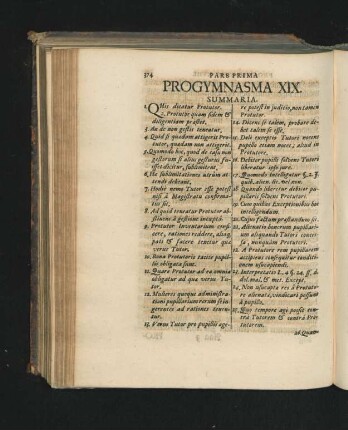 374 PARS PRIMA
PROGYMNASMA XIX.
SUMMARIA.
1. Quis dicatur Protutor.
2. Protutor quam fidem &
diligentiam præstet,
3. An de non gestis teneatur,
4. Quid si quædam attigerit Pro-
tutor, quædam non attigerit.
5. Quomodo hoc, quod de casu non
gestorum si alius gesturus fu-
isset dicitur, sublimitent,
6. De sublimitationis utrum at-
tendi debeant,
7. Unde nemo Tutor esse potest
nisi à Magistratu confirma-
tus sit,
8. Ad quid teneatur Protutor ab-
stinens à gestione incepta.
9. Protutor inventarium confi-
cere, rationes reddere, alienos
pati & facere tenetur quæ
verus Tutor.
10. Bona Protutoris tacitè pupil-
lis obligata sunt.
11. Quare Protutor ad ea omnia
obligatur ad quæ verus Tu-
tor,
12. Mulieres quoque administra-
tioni pupillarium rerum se in-
gerentes ad rationes tenen-
tur.
13. Verus Tutor pro pupillis age-
re potest in juditio, non tamen
Protutor.
14. Dicens se talem, probare de-
bet talem se esse,
15. Doli exceptio Tutori nocent
pupillo etiam nocet, aliud in
Protutore,
16. Debitor pupilli solvens Tutori
liberatur ipso jure.
17. Quomodo intelligatur §. 2. ff.
quib. alien. lic. vel non.
18. Quando liberetur debitor pu-
pillaris solvens Protutori.
19. Cum quibus Exceptionibus hoc
intelligendum.
20. Cujus factum præstandum sit.
21. Alienatio bonorum pupillari-
um aliquando Tutori conces-
sa, nunquam Protutori.
22. A Protutore rem pupillarem
accipiens consequitur conditi-
onem usucapiendi.
23. Interpretatio L. 4. §. 24. ff. de
dol. mal. & met. Except.
24. Non usucapta res à Protuto-
re alienata, vendicari possunt
à pupillo.
25. Quo tempore agi possit con-
tra Tutorem & contra Pro-
tutorem.